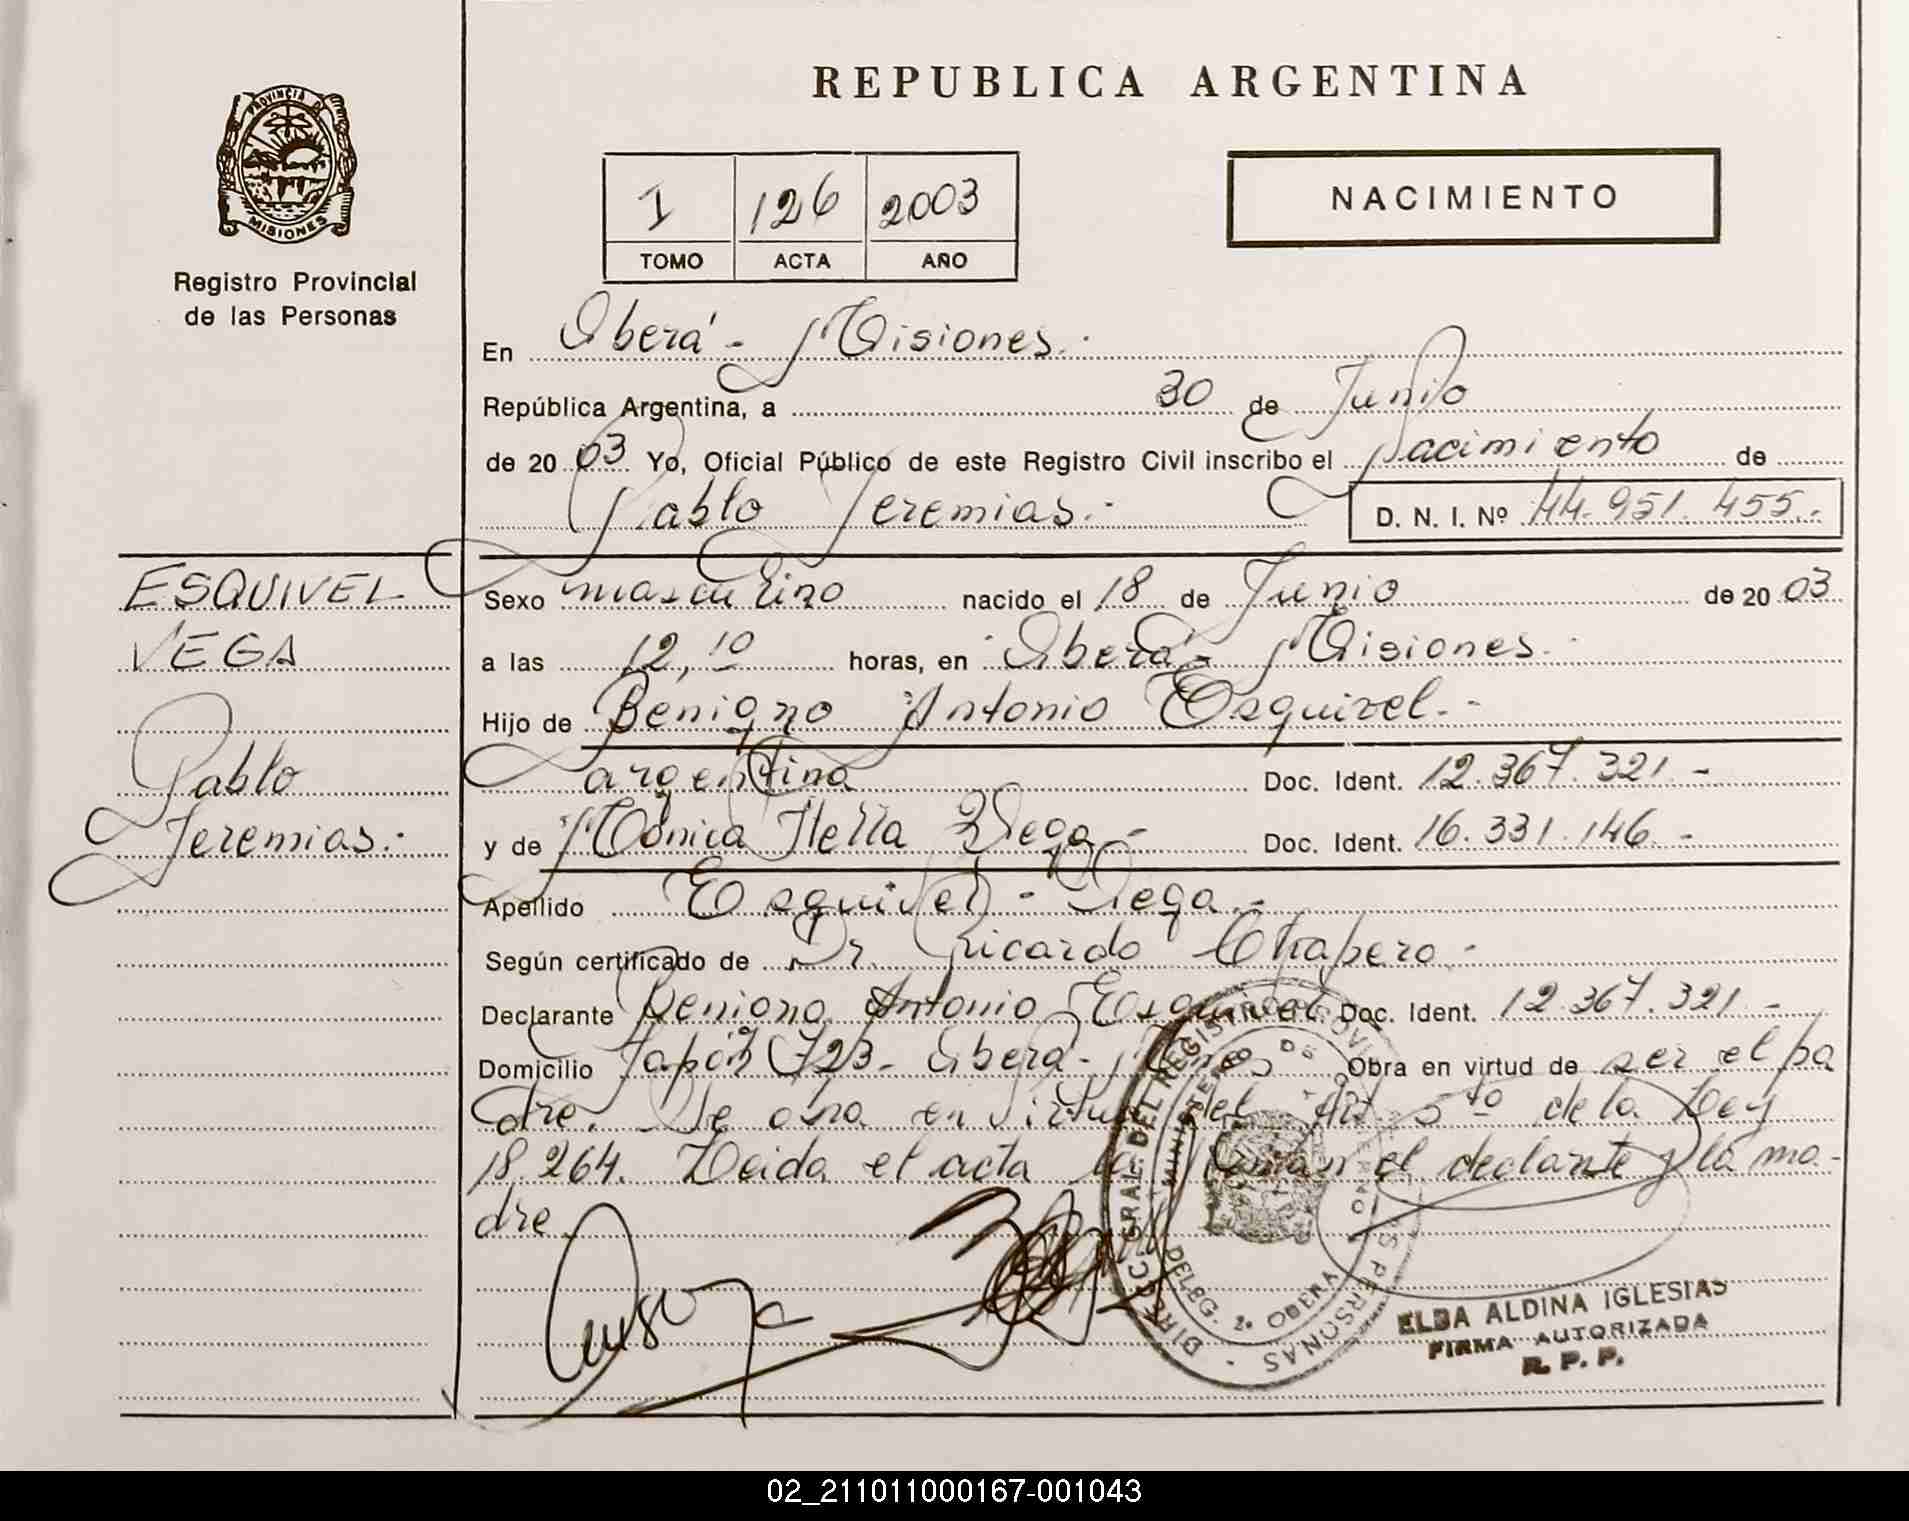 REPUBLICA ARGENTINA
PROVINCIA DE
MISIONES
Registro Provincial
de las Personas
I 126 2003
TOMO ACTA AÑO
NACIMIENTO
En Oberá - Misiones.-
República Argentina, a 30 de Junio
de 2003 Yo, Oficial Público de este Registro Civil inscribo el Nacimiento de
Pablo Jeremias.- D. N. I. Nº 44.951.455.-
ESQUIVEL
VEGA
Pablo
Jeremias.-
Sexo masculino nacido el 18 de Junio de 2003
a las 12,10 horas, en Oberá - Misiones.-
Hijo de Benigno Antonio Esquivel.-
argentina Doc. Ident. 12.367.321.-
y de Mónica Stella Vega - Doc. Ident. 16.331.146.-
Apellido Esquivel - Vega.-
Según certificado de Dr. Ricardo
Declarante Benigno Antonio Esquivel Doc. Ident. 12.367.321.-
Domicilio Japón 723 - Oberá - Mnes Obra en virtud de ser el pa
dre. Se obra en virtud del Art 5to de la Ley
18.264. Leida el acta la firman el declarante y la ma-
dre.
DIRECC. GRAL. DEL REGISTRO PERSONAS
MINISTERIO DE GOBIERNO
DELEG. 2ª OBERA
ELBA ALDINA IGLESIAS
FIRMA AUTORIZADA
R. P. P.
02_211011000167-001043